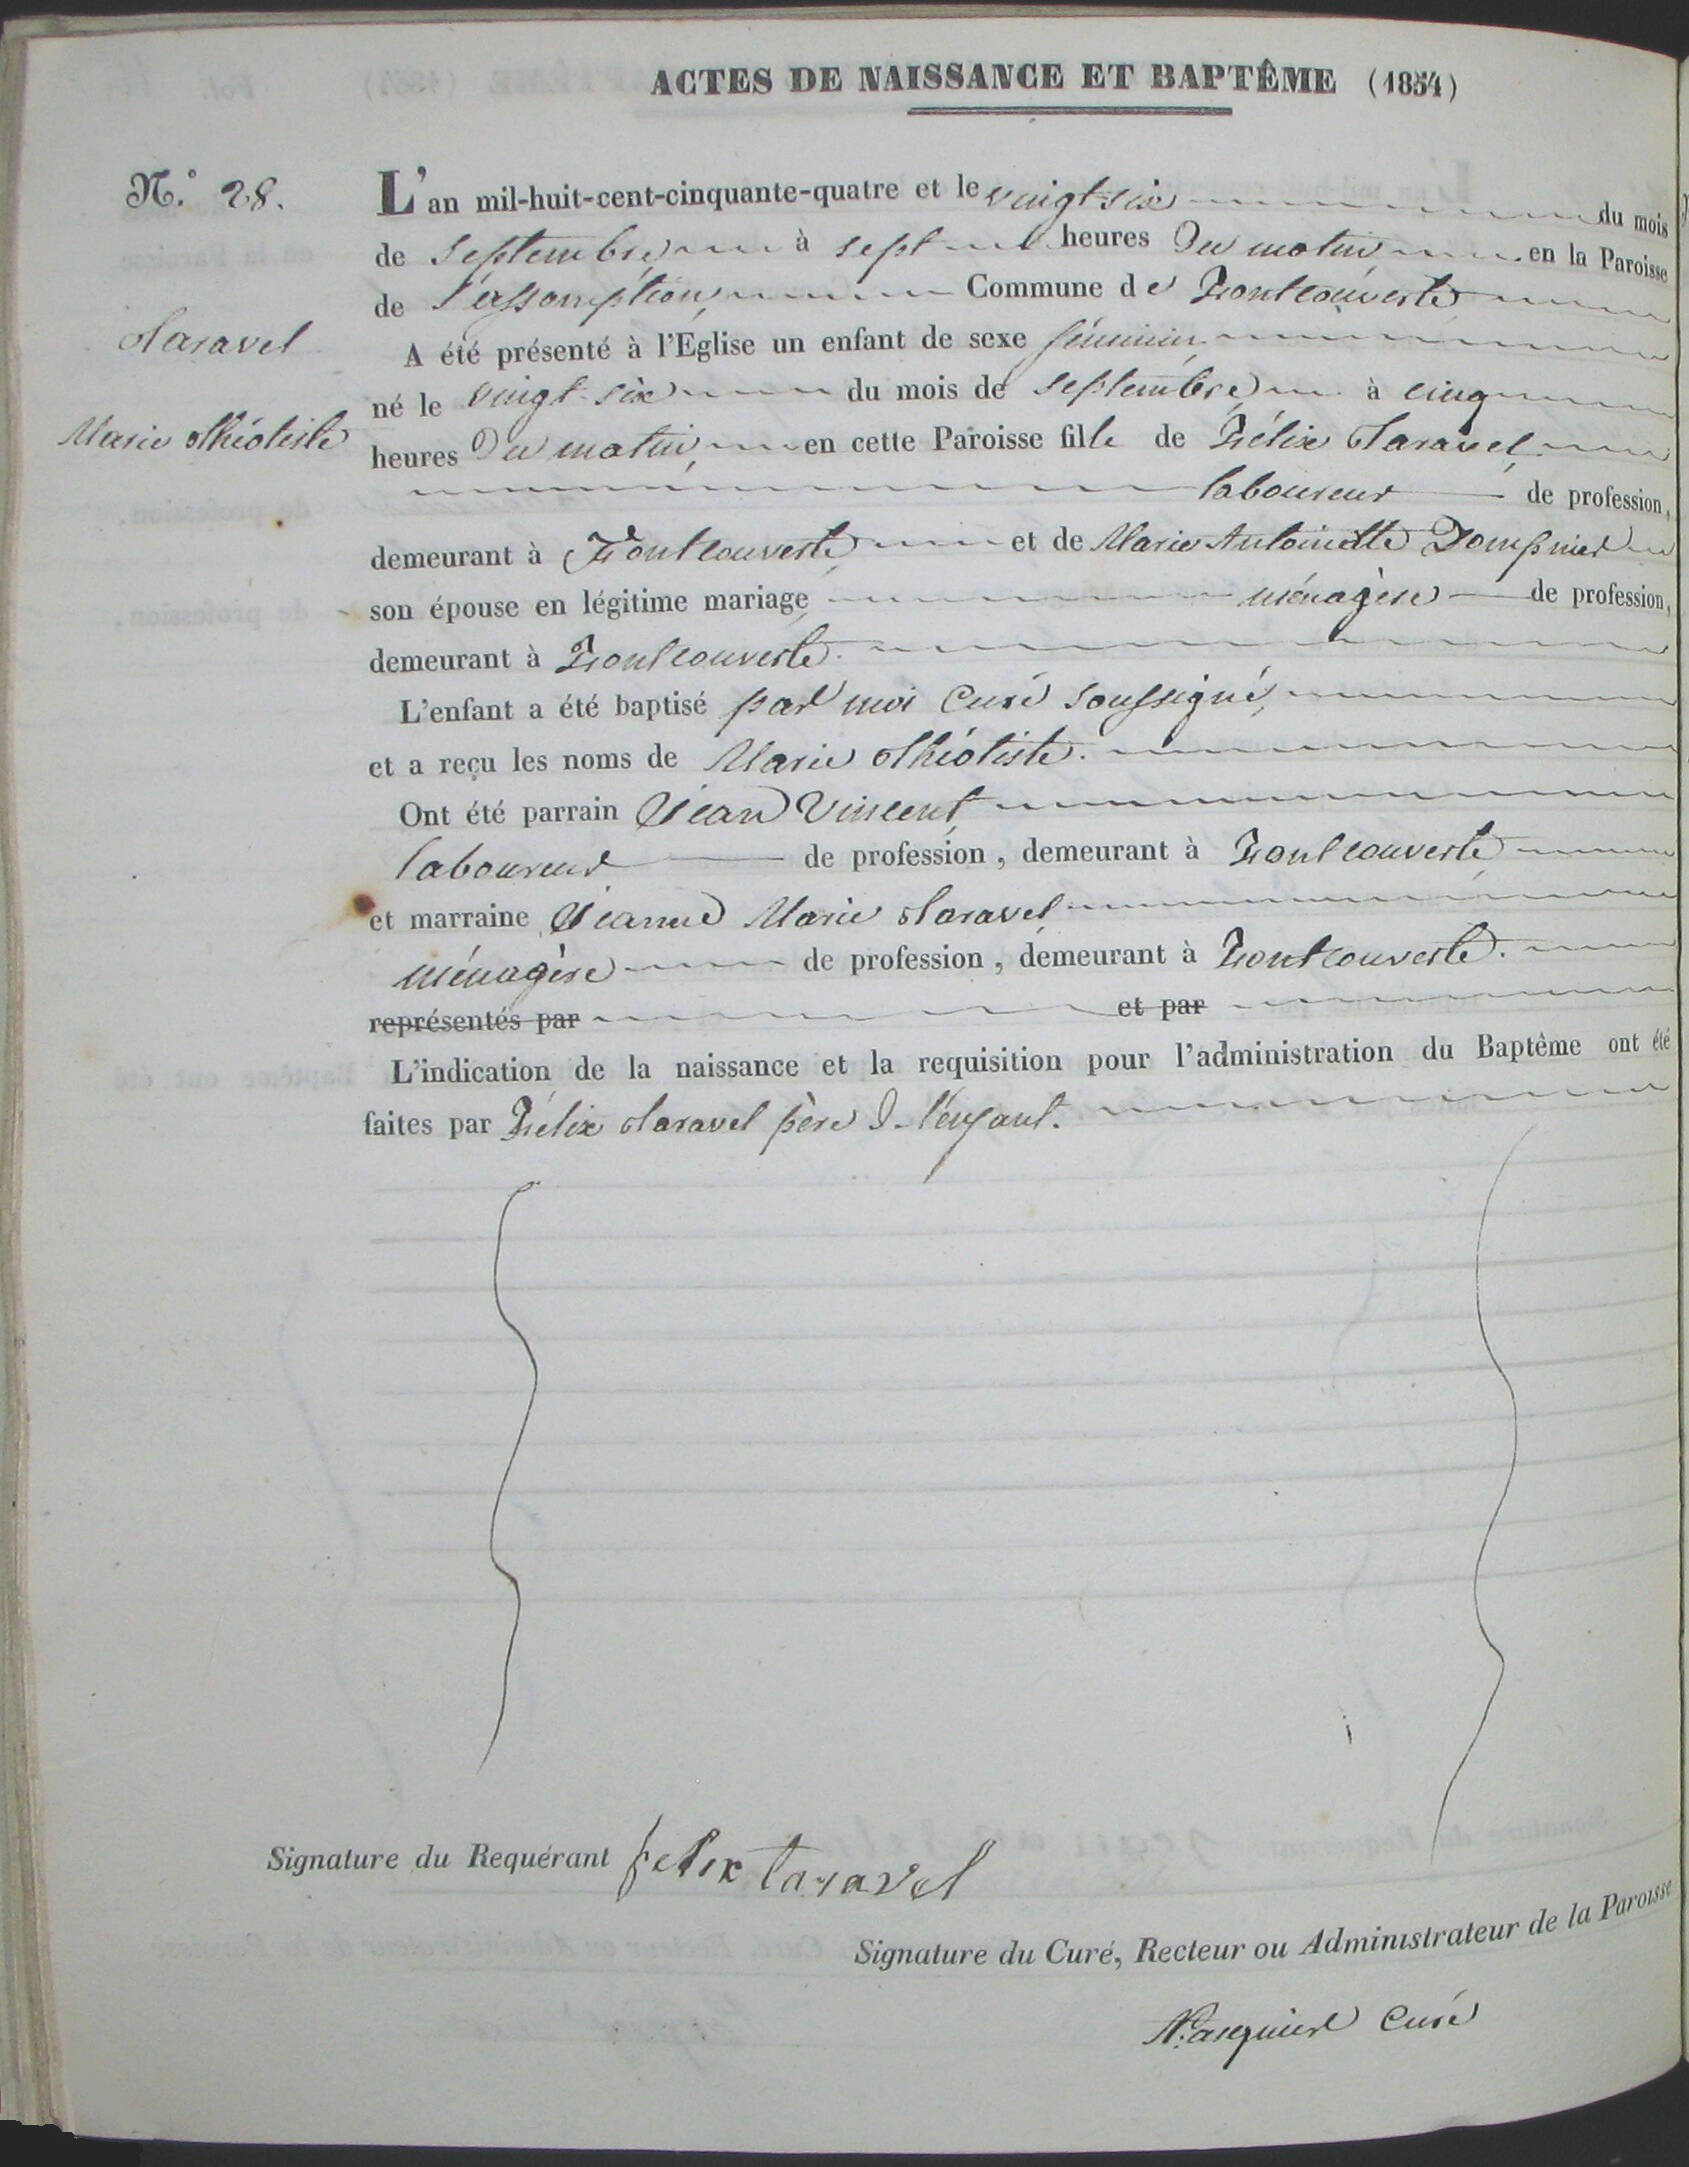 ACTES DE NAISSANCE ET BAPTÊME (1854)
N.° 28.
Taravel
Marie Théotiste
L'an mil-huit-cent-cinquante-quatre et le vingt-six du mois
de septembre à sept heures du matin en la Paroisse
de l'assomption, Commune de Fontcouverte
A été présenté à l'Eglise un enfant de sexe féminin
né le vingt-six du mois de septembre à cinq
heures du matin, en cette Paroisse fille de Félix Taravel,
laboureur de profession,
demeurant à Fontcouverte et de Marie Antoinette Dompnier
son épouse en légitime mariage ménagère de profession,
demeurant à Fontcouverte.
L'enfant a été baptisé par moi Curé soussigné,
et a reçu les noms de Marie Théotiste.
Ont été parrain Jean Vincent,
laboureur de profession, demeurant à Fontcouverte
et marraine Jeanne Marie Taravel,
ménagère de profession, demeurant à Fontcouverte.
représentés par et par
L'indication de la naissance et la requisition pour l'administration du Baptême ont été
faites par Félix Taravel père d. l'enfant.
Signature du Requérant felix taravel
Signature du Curé, Recteur ou Administrateur de la Paroisse
Curé